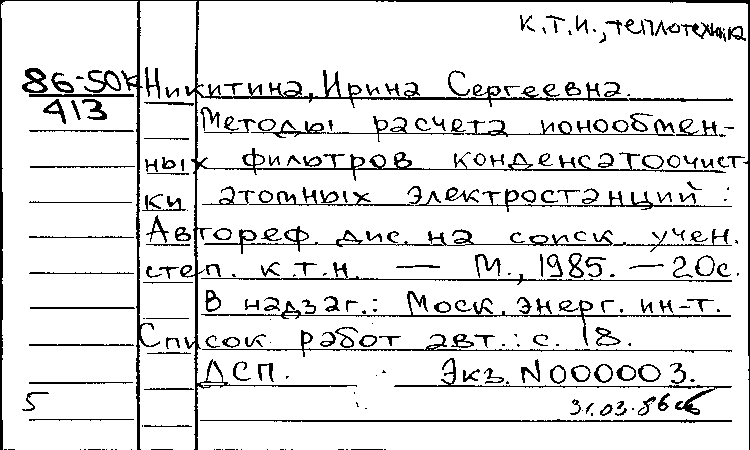 К.Т.Н., теплотехника
86-50к Никитина, Ирина Сергеевна.
413
Методы расчета ионообмен-
ных фильтров конденсатоочист-
ки атомных электростанций :
Автореф. дис. на соиск. учен.
степ. к.т.н. — М., 1985. — 20с.
В надзаг.: Моск. энерг. ин-т.
Список работ авт.: с. 18.
ДСП. Экз. N000003.
5 31.03.86